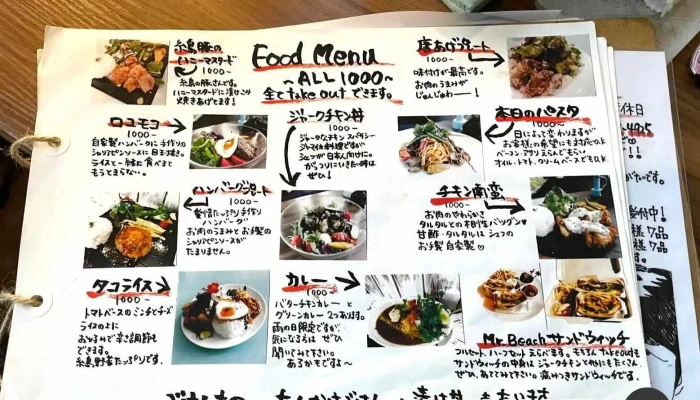 Food Menu
~ALL 1000~
全て take out できます。
糸島豚の
ハニーマスタード
1000-
糸島の豚さんです。
ハニーマスタードに漬けこみ
焼きあげてます！
唐あげプレート
1000-
味付けが最高です。
お肉のうまみが
じゅんじゅわー！
ロコモコ
1000-
自家製ハンバーグに手作りの
シャリアピンソースに目玉焼き。
ライスと一緒に食べると
もうとまらない。
ジャークチキン丼
1000-
ジャークなチキン スパイシー
ジャマイカ料理ですが
シェフが日本人向けに。
がっつりにいきたい時は
ぜひ！
本日のパスタ
1000-
日によって変わりますが
お客様の希望にもまずはO.K
ベーコン・アサリえらんでもらい
オイル・トマト、クリームベースでもO.K
ハンバーグプレート
1000-
愛情たっぷり手作り
ハンバーグ
お肉のうまみとお手製の
シャリアピンソースが
たまりません。
チキン南蛮
1000-
お肉のやわらかさ
タルタルとの相性バツグン♥
甘酢・タルタルはシェフの
お手製自家製♡
タコライス
1000-
トマトベースのミンチとチーズ
ライスの上に
お好みで辛さ調節も
できます。
糸島野菜たっぷりです。
カレー
1000
バターチキンカレーと
グリーンカレー 2つあります。
雨の日限定ですが
気になる方はぜひ
聞いてみて下さい。
あるかもですよ～
Mr.Beach サンドウィッチ
1つピセット、ハーフセットえらべます。もちろんTakeoutも
サンドウィッチの中身はジャークチキンと他にもたくさん
ぜひ、あててみて下さい。漬けつきサンドウィッチです。
休日
！！
がたいです。
受付中！
様 7品
様 7品